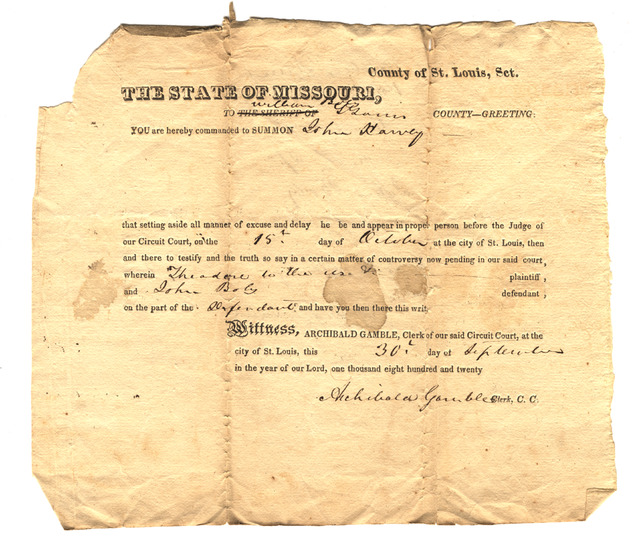 County of St. Louis, Sct.
THE STATE OF MISSOURI,
William
TO THE SHERIFF OF COUNTY—GREETING:
YOU are hereby commanded to SUMMON John Harvey
that setting aside all manner of excuse and delay he be and appear in proper person before the Judge of
our Circuit Court, on the 15t day of October at the city of St. Louis, then
and there to testify and the truth so say in a certain matter of controversy now pending in our said court,
wherein Theodore to the use plaintiff,
and John defendant,
on the part of the Defendant and have you then there this writ.
Wittness, ARCHIBALD GAMBLE, Clerk of our said Circuit Court, at the
city of St. Louis, this 30t day of September
in the year of our Lord, one thousand eight hundred and twenty
Archibald Gamble Clerk, C. C.